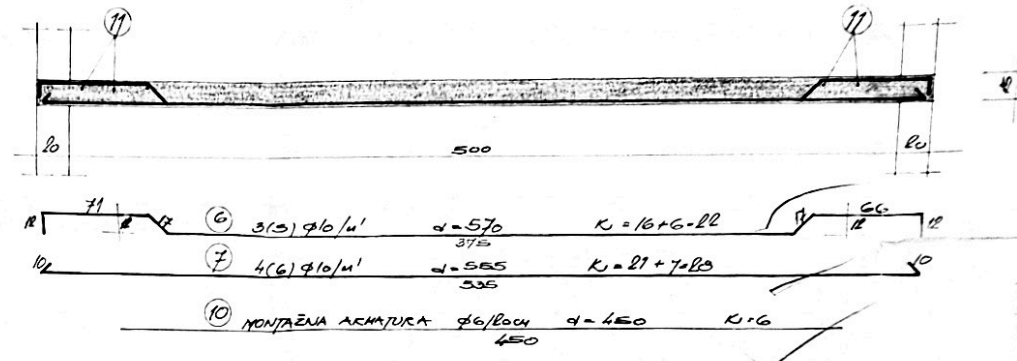 11 11
12
20 500 20
71 66
12 12 17 6 3(3) φ10/m' d=570 K=16+6=22 17 12 12
375
10 7 4(6) φ10/m' d=555 K=21+7=28 10
535
10 MONTAŽNA ARMATURA φ6/20cm d=450 K=6
450